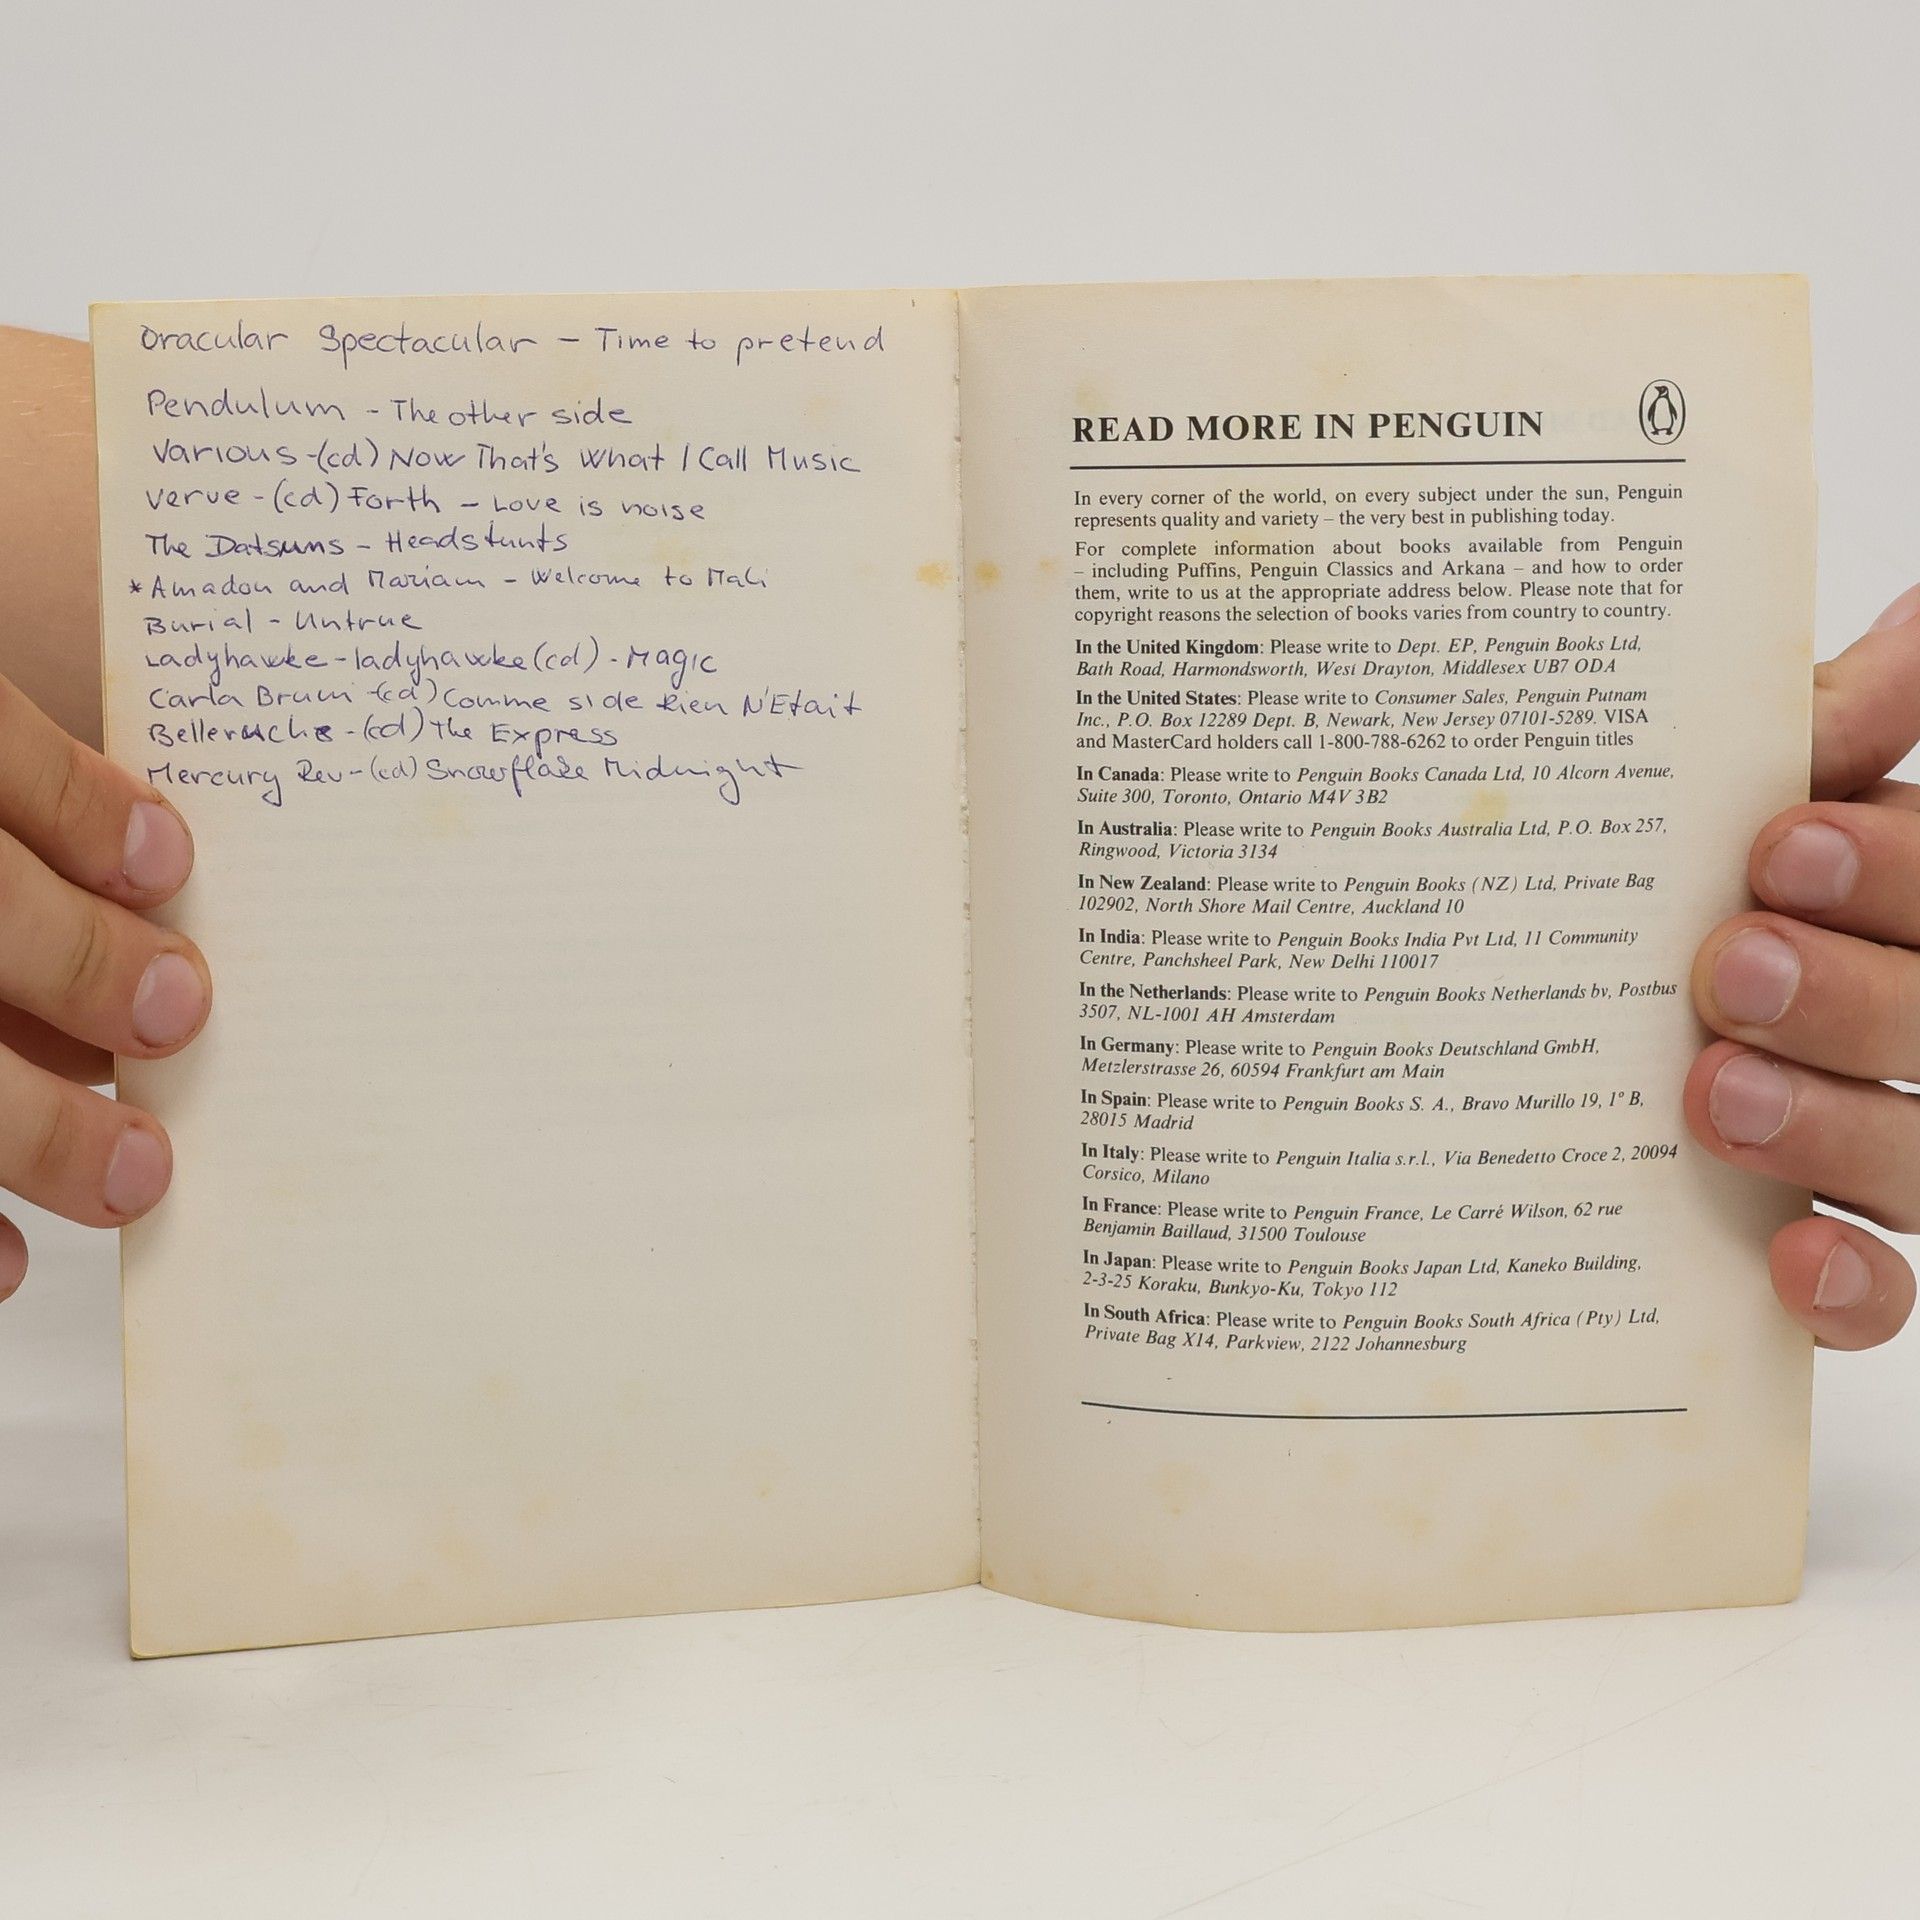 Oracular Spectacular – Time to pretend
Pendulum - The other side
Various -(cd) Now That's What I Call Music
Verve - (cd) Forth - Love is noise
The Datsuns - Headstunts
* Amadou and Mariam - Welcome to Mali
Burial - Untrue
Ladyhawke - ladyhawke (cd) - Magic
Carla Bruni -(cd) Comme si de Rien N'Etait
Belleruche - (cd) The Express
Mercury Rev - (cd) Snowflake Midnight
READ MORE IN PENGUIN
In every corner of the world, on every subject under the sun, Penguin
represents quality and variety – the very best in publishing today.
For complete information about books available from Penguin
– including Puffins, Penguin Classics and Arkana – and how to order
them, write to us at the appropriate address below. Please note that for
copyright reasons the selection of books varies from country to country.
In the United Kingdom: Please write to Dept. EP, Penguin Books Ltd,
Bath Road, Harmondsworth, West Drayton, Middlesex UB7 ODA
In the United States: Please write to Consumer Sales, Penguin Putnam
Inc., P.O. Box 12289 Dept. B, Newark, New Jersey 07101-5289. VISA
and MasterCard holders call 1-800-788-6262 to order Penguin titles
In Canada: Please write to Penguin Books Canada Ltd, 10 Alcorn Avenue,
Suite 300, Toronto, Ontario M4V 3B2
In Australia: Please write to Penguin Books Australia Ltd, P.O. Box 257,
Ringwood, Victoria 3134
In New Zealand: Please write to Penguin Books (NZ) Ltd, Private Bag
102902, North Shore Mail Centre, Auckland 10
In India: Please write to Penguin Books India Pvt Ltd, 11 Community
Centre, Panchsheel Park, New Delhi 110017
In the Netherlands: Please write to Penguin Books Netherlands bv, Postbus
3507, NL-1001 AH Amsterdam
In Germany: Please write to Penguin Books Deutschland GmbH,
Metzlerstrasse 26, 60594 Frankfurt am Main
In Spain: Please write to Penguin Books S. A., Bravo Murillo 19, 1º B,
28015 Madrid
In Italy: Please write to Penguin Italia s.r.l., Via Benedetto Croce 2, 20094
Corsico, Milano
In France: Please write to Penguin France, Le Carré Wilson, 62 rue
Benjamin Baillaud, 31500 Toulouse
In Japan: Please write to Penguin Books Japan Ltd, Kaneko Building,
2-3-25 Koraku, Bunkyo-Ku, Tokyo 112
In South Africa: Please write to Penguin Books South Africa (Pty) Ltd,
Private Bag X14, Parkview, 2122 Johannesburg